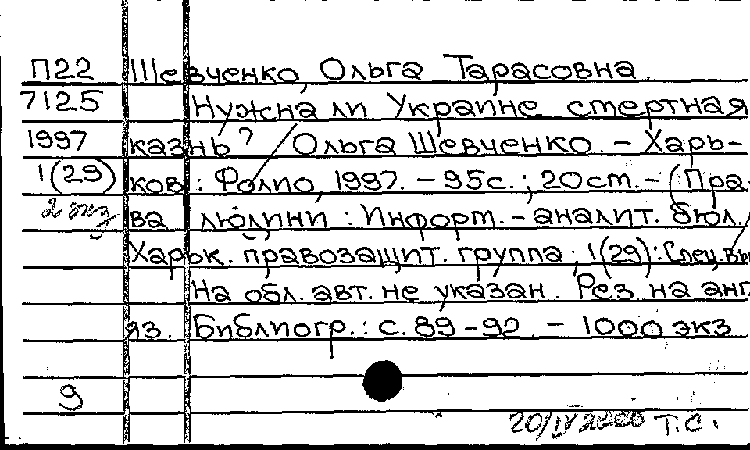 П22 Шевченко, Ольга Тарасовна.
7125 Нужна ли Украине смертная
1997 казнь? / Ольга Шевченко. - Харь-
1(29) ков: Фолио, 1997. - 95с.; 20см. - (Пра-
2 экз ва людини: Информ.-аналит. бюл. /
Харьк. правозащит. группа; 1(29): Спец. вы
На обл. авт. не указан. Рез. на анг
яз. Библиогр.: с. 89-92. - 1000 экз
9
20/IV 2000 Т.С.